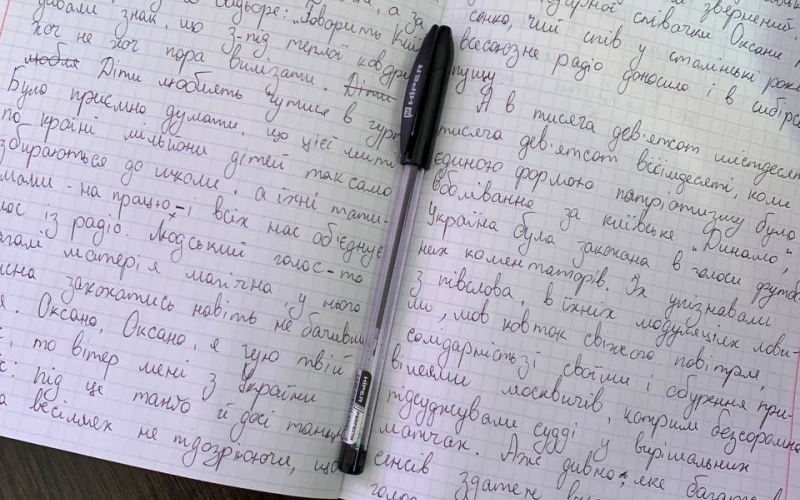 , а за
: „Говорить Київ
знак, що з-під теплої ковдри
хоч не хоч пора вилізати. Діти
любля Діти люблять бути в гурті
Було приємно думати, що цієї миті
по країні мільйони дітей так само
збираються до школи, а їхні тати-
мами - на працю - і всіх нас об'єднує
лос із радіо. Людський голос - то
агом матерія магічна, у нього
на закохатись навіть не бачивши
. Оксано, Оксано, я чую твій
, то вітер мені з України
під це танго й досі танцю
а весіллях не підозрюючи, що
звернений
співачки Оксани
енко, чий спів у сталінські роки
всесоюзне радіо доносило і в сибірс
пущу.
А в тисяча дев'ятсот шістдесяті
тисяча дев'ятсот вісімдесяті, коли
єдиною формою патріотизму було
вболівання за київське „Динамо",
Україна була закохана в голоси футбо
них коментаторів. Їх упізнавали
з півслова, в їхніх модуляціях лови-
ли, мов ковток свіжого повітря,
солідарність зі своїми і обурення при-
вілеями москвичів, котрим безсоромно
підсуджували судді у вирішальних
матчах. Аж дивно, яке багатс
сенсів здатен
голос
HIPER
HIPER